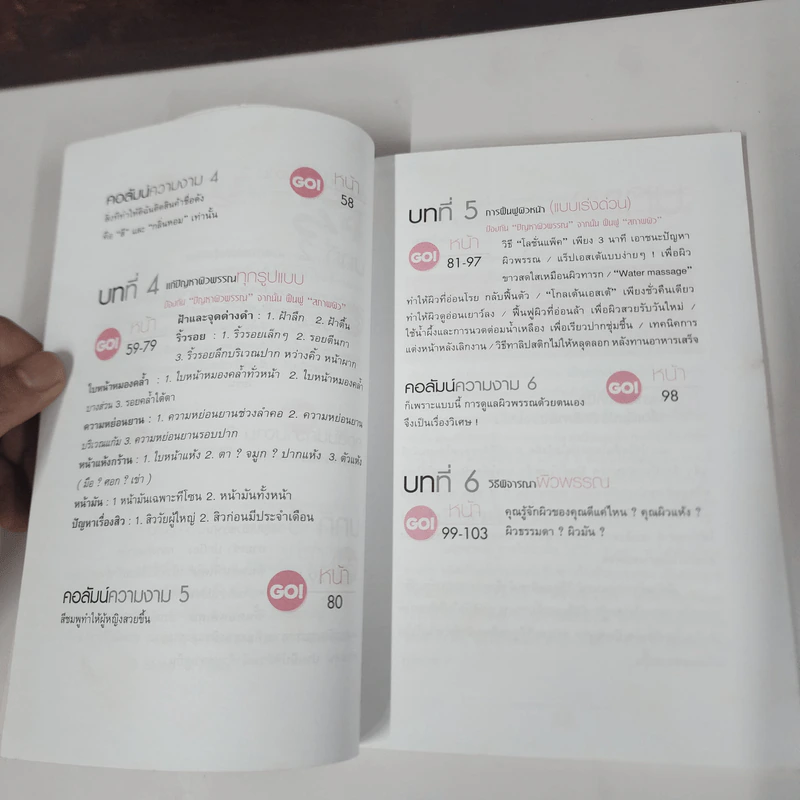 คอลัมน์ความงาม 4
GO!
หน้า
58
สิ่งที่ทำให้ดิฉันติดสินค้าชื่อดัง
คือ "สี" และ "กลิ่นหอม" เท่านั้น
บทที่ 4 แก้ปัญหาผิวพรรณทุกรูปแบบ
ป้องกัน "ปัญหาผิวพรรณ" จากนั้น ฟื้นฟู "สภาพผิว"
GO!
หน้า
59-79
ฝ้าและจุดด่างดำ : 1. ฝ้าลึก 2. ฝ้าตื้น
ริ้วรอย : 1. ริ้วรอยเล็กๆ 2. รอยตีนกา
3. ริ้วรอยลึกบริเวณปาก หว่างคิ้ว หน้าผาก
ใบหน้าหมองคล้ำ : 1. ใบหน้าหมองคล้ำทั่วหน้า 2. ใบหน้าหมองคล้ำ
บางส่วน 3. รอยคล้ำใต้ตา
ความหย่อนยาน : 1. ความหย่อนยานช่วงลำคอ 2. ความหย่อนยาน
บริเวณแก้ม 3. ความหย่อนยานรอบปาก
หน้าแห้งกร้าน : 1. ใบหน้าแห้ง 2. ตา ? จมูก ? ปากแห้ง 3. ตัวแห้ง
( มือ ? ศอก ? เข่า )
หน้ามัน : 1 หน้ามันเฉพาะทีโซน 2. หน้ามันทั้งหน้า
ปัญหาเรื่องสิว : 1. สิววัยผู้ใหญ่ 2. สิวก่อนมีประจำเดือน
คอลัมน์ความงาม 5
GO!
หน้า
80
สีชมพูทำให้ผู้หญิงสวยขึ้น
บทที่ 5 การฟื้นฟูผิวหน้า (แบบเร่งด่วน)
ป้องกัน "ปัญหาผิวพรรณ" จากนั้น ฟื้นฟู "สภาพผิว"
GO!
หน้า
81-97
วิธี "โลชั่นแพ็ค" เพียง 3 นาที เอาชนะปัญหา
ผิวพรรณ / แร็ปเอสเต้แบบง่ายๆ ! เพื่อผิว
ขาวสดใสเหมือนผิวทารก / "Water massage"
ทำให้ผิวที่อ่อนโรย กลับฟื้นตัว / "โกลเด้นเอสเต้" เพียงชั่วคืนเดียว
ทำให้ผิวดูอ่อนเยาว์ลง / ฟื้นฟูผิวที่อ่อนล้า เพื่อผิวสวยรับวันใหม่ /
ใช้น้ำผึ้งและการนวดต่อมน้ำเหลือง เพื่อเรียวปากชุ่มชื้น / เทคนิคการ
แต่งหน้าหลังเลิกงาน / วิธีทาลิปสติกไม่ให้หลุดลอก หลังทานอาหารเสร็จ
คอลัมน์ความงาม 6
GO!
หน้า
98
ก็เพราะแบบนี้ การดูแลผิวพรรณด้วยตนเอง
จึงเป็นเรื่องวิเศษ !
บทที่ 6 วิธีพิจารณาผิวพรรณ
GO!
หน้า
99-103
คุณรู้จักผิวของคุณดีแค่ไหน ? คุณผิวแห้ง ?
ผิวธรรมดา ? ผิวมัน ?